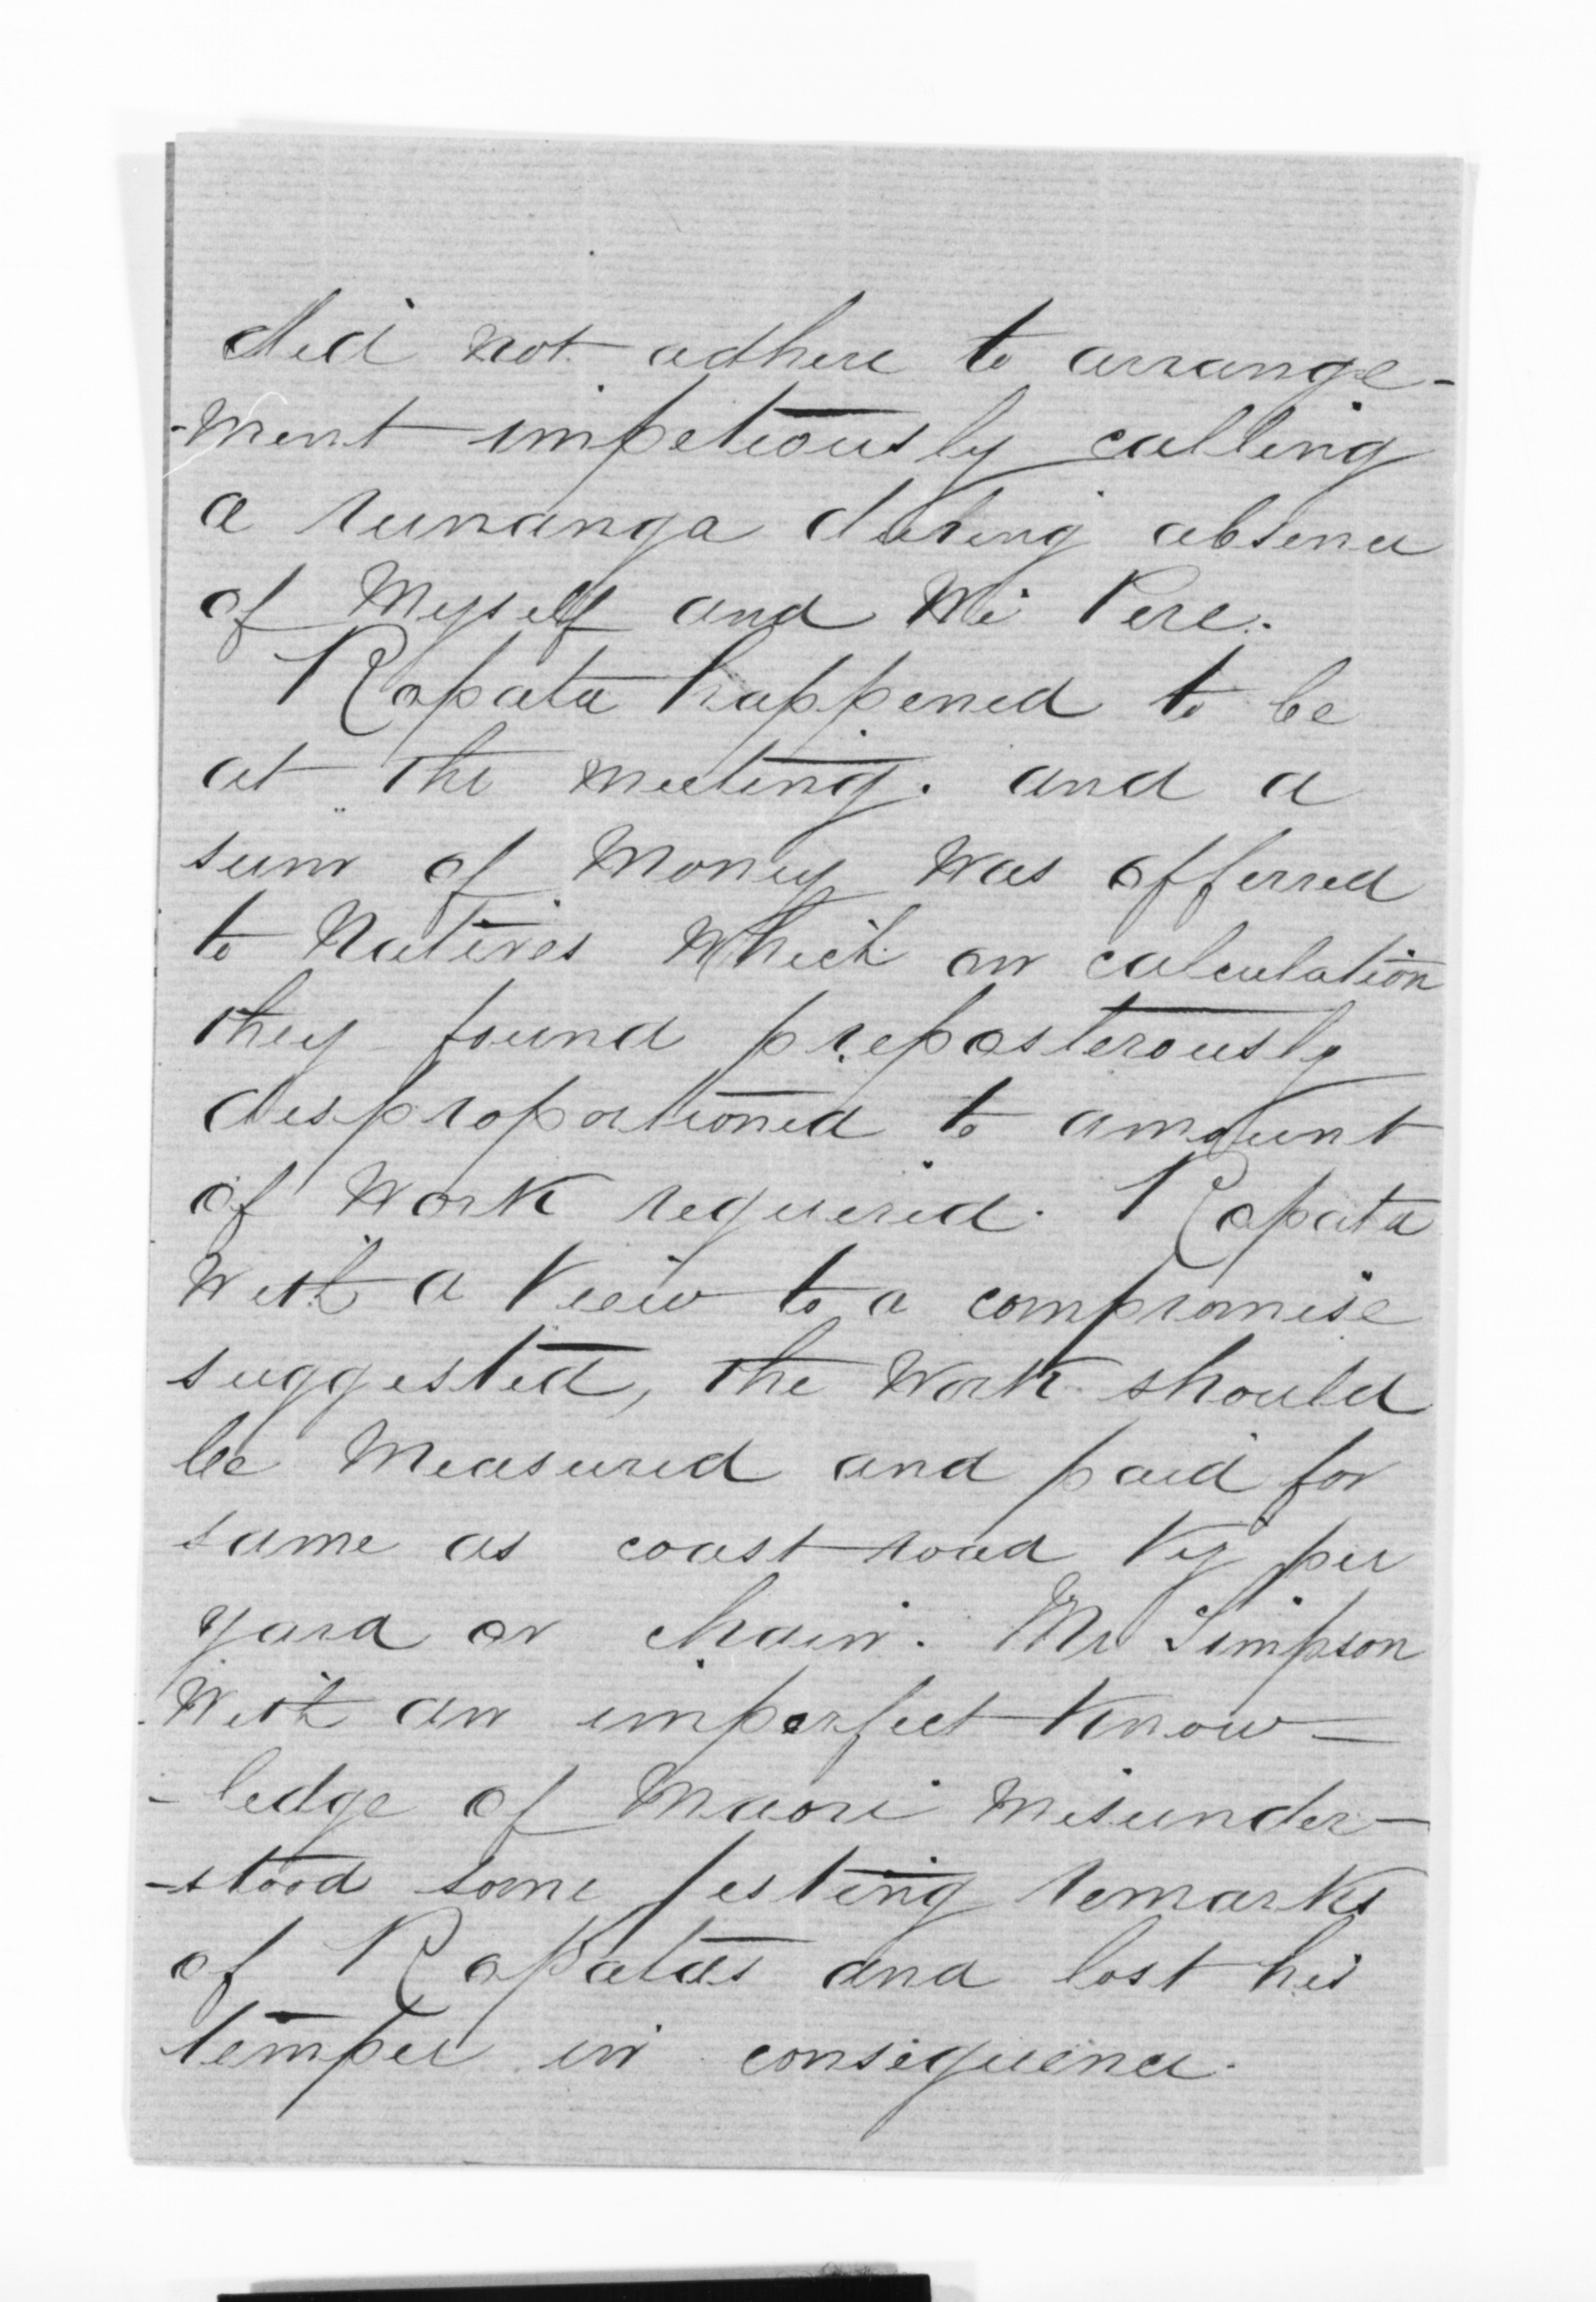 did not adhere to arrange-
-ment impetiously calling
a runanga during absence
of Myself and Wi Pere.
Ropata happened to be
at the meeting. and a
sum of Money was offerred
to Natives Which on calculation
they found preposterously
disproportioned to amount
of Work required. Ropata
With a View to a compromise
suggested, the Work should
be Measured and paid for
same as coast road Viz per
yard or chain. Mr Simpson
With an imperfect Know-
-ledge of Maori Misunder-
-stood some jesting remarks
of Ropatas and lost his
temper in consequence.